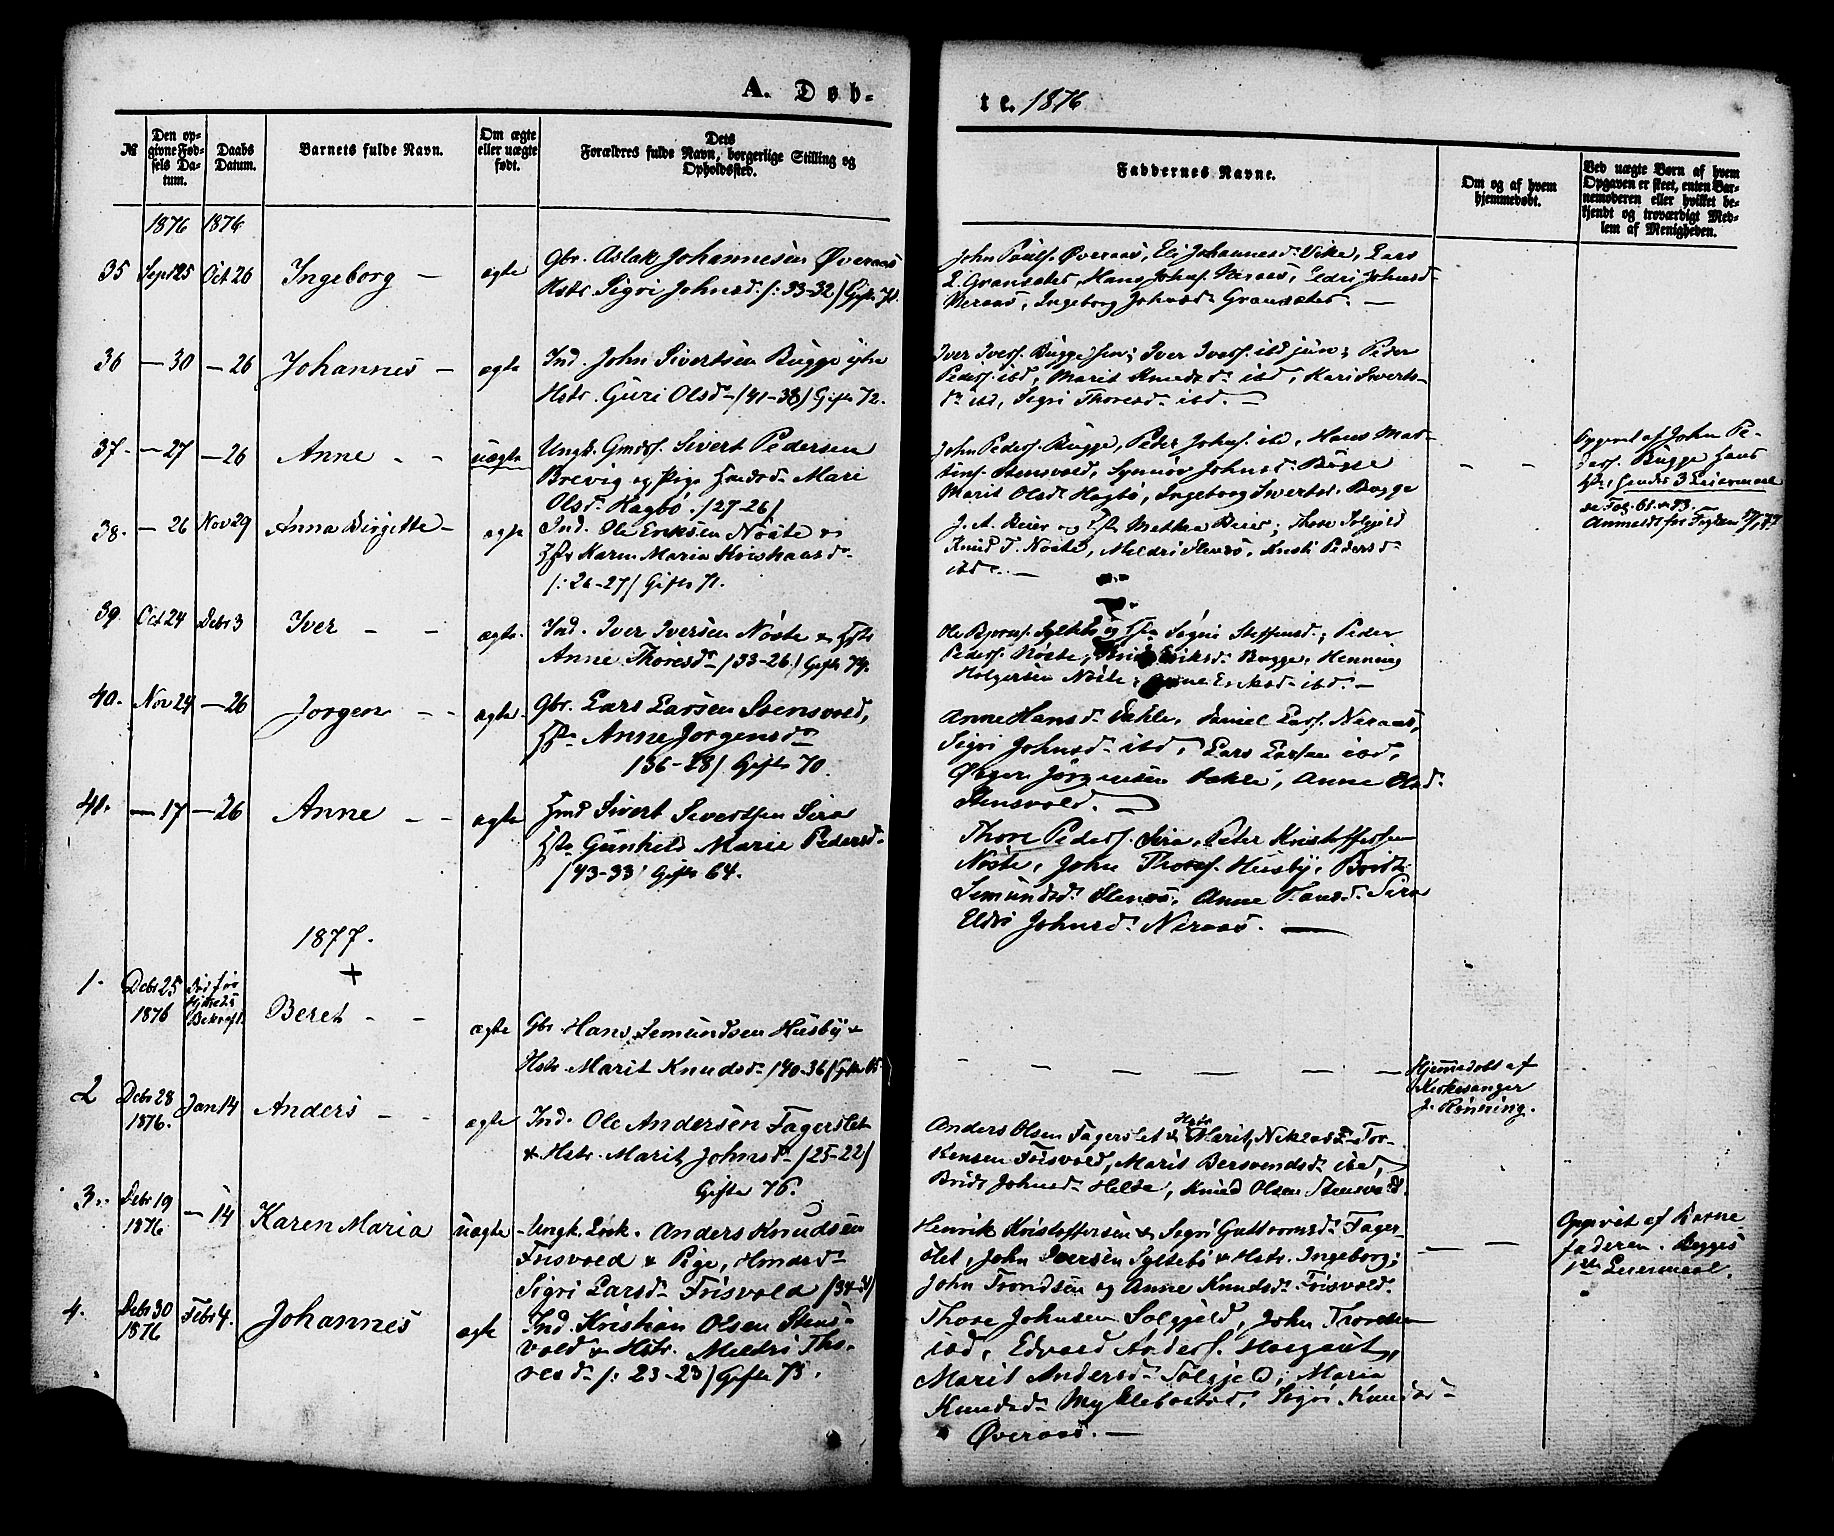 A. Døb-
te. 1876
№
Den op-
givne Fød-
sels Da-
tum.
Daabs
Datum.
Barnets fulde Navn.
Om ægte
eller uægte
født.
Dets
Forældres fulde Navn, borgerlige Stilling og
Opholdssted.
Faddernes Navne.
Om og af hvem
hjemmedøbt.
Ved uægte Børn af hvem
Opgaven er skeet, enten Bar-
nemoderen eller hvilket be-
kjendt og troværdigt Med-
lem af Menigheden.
1876 1876
35 Sept 25 Oct 26 Ingeborg — ægte
Gbr. Aslak Johannesen Øveraas
Hstr. Sigri Johnsd. /: 33-32/ Gifte
John Pauls. Øveraas, Eli Johannesd. Vike, Lars
L. Gransætes, Hans Johns. Neraas, Eldri Johnsd
Neraas, Ingeborg Johnsd. Gransætes. —
36 — 30 — 26 Johannes — ægte
Ind. John Sivertsen Bugge
Hstr. Guri Olsd. /41-38/ Gifte 72.
Iver Ivers. Bugge sen; Iver Ivers. ibd jun; Peder
Peders. ibd, Marit Knudsd. ibd, Kari Siverts-
dr ibd, Sigri Thoresd. ibd. —
37. — 27 — 26 Anne - - uægte
Ungk. Gmds. Sivert Pedersen
Brevig og Pige Hmdsd. Mari
Olsd. Hagbø. /27-26/
John Peders. Bugge, Peter Johns. ibd, Hans Mat-
tins. Stensvold, Synnøv Johnsd. Bugge
Marit Olsd. Hagbø, Ingeborg Sivertsd. Bugge
— —
Opgivet af John Pe-
ders. Bugge hans
3 Leiermaal
38. — 26 Nov 29 Anna Birgitte — ægte
Ind. Ole Eriksen Nöste &
Hstr Karen Maria Kristiansd.
/: 26-27/ Gifte 71.
J. A. Beier og Hstr Mathea Beier; Thore Solgjeld
Knud T. Nöste, Meldri Stensö, Kristi Pedersd
ibd. —
39. Oct 24 Debr 3 Iver - - ægte.
Ind. Iver Iversen Nöste & Hstr
Anne Thoresd. /33-26/ Gifte 74.
Ole Bjørns. Syltebö og Hstr Segni Steffensd.; Peder
Peders. Nöste; Eriksd. Bugge, Henning
Holgersen Nöste; ibd. —
40. Nov 24 — 26 Jørgen - - ægte.
Gbr. Lars Larsen Stensvold,
Hstr. Anne Jorgensd.
/36-28/ Gifte 70.
Anne Hansd. Dahle, Daniel Lars. Neraas,
Sigri Johnsd. ibd, Lars Larsen ibd,
Jörgensen Dahle, Anne Olsd.
Stensvold. —
41. — 17 — 26 Anne - - ægte
Hmd Sivert Sivertsen Sira
Hstr Gunhild Marie Pedersd.
/43-33/ Gifte 64.
Thore Peders. Sira, Peter Kristoffersen
Nöste, John Thores. Husby, Beret
Semundsd. Stensö, Anne Hansd. Sira
Eldri Johnsd. Neraas. —
1877.
+
1. Debr 25
1876
Beret - - ægte
Gbr. Hans Semundsen Husby &
Hstr. Marit Knudsd. /40-36/
— — — — — —
Hjemmedøbt af
Kirkesanger
J. Rönning.
2 Debr 28
1876. Jan 14 Anders - - ægte
Ind. Ole Andersen Fagerslet
& Hstr. Marit Johnsd. /25-22/
Gifte 76.
Anders Olsen Fagerslet & Hstr Marit, Neklas Tor-
kensen Frisvold, Marit Bersvendsd. ibd,
Johnsd. Helde, Knud Olsen Stensvold.
3. Debr 19
1876 — 14 Karen Maria uægte
Ungk. Anders Knudsen
Frisvold & Pige, Hmdsd.
Sigri Larsd. Frisvold
Henrik Kristoffersen & Sigri Guttormsd. Fager-
slet, John Iversen Syltebö & Hstr. Ingeborg;
John Trondsen og Anne Knudsd. Frisvold.
— —
Opgivet af Barne-
faderen. Begges
1ste Leiermaal.
4. Debr 30
1876 Febr 4. Johannes ægte
Ind. Kristian Olsen Stens-
vold & Hstr. Meldri Tho-
resd. /: 23-23/ Gifte 75.
Thore Johnsen Solgjeld, John Thoresen
ibd, Edvard Anders. Horgaut,
Marit Andersd. Solgjeld, Maria
Knudsd. Myklebostad, Sigri Knudsd.
Øveraas. —